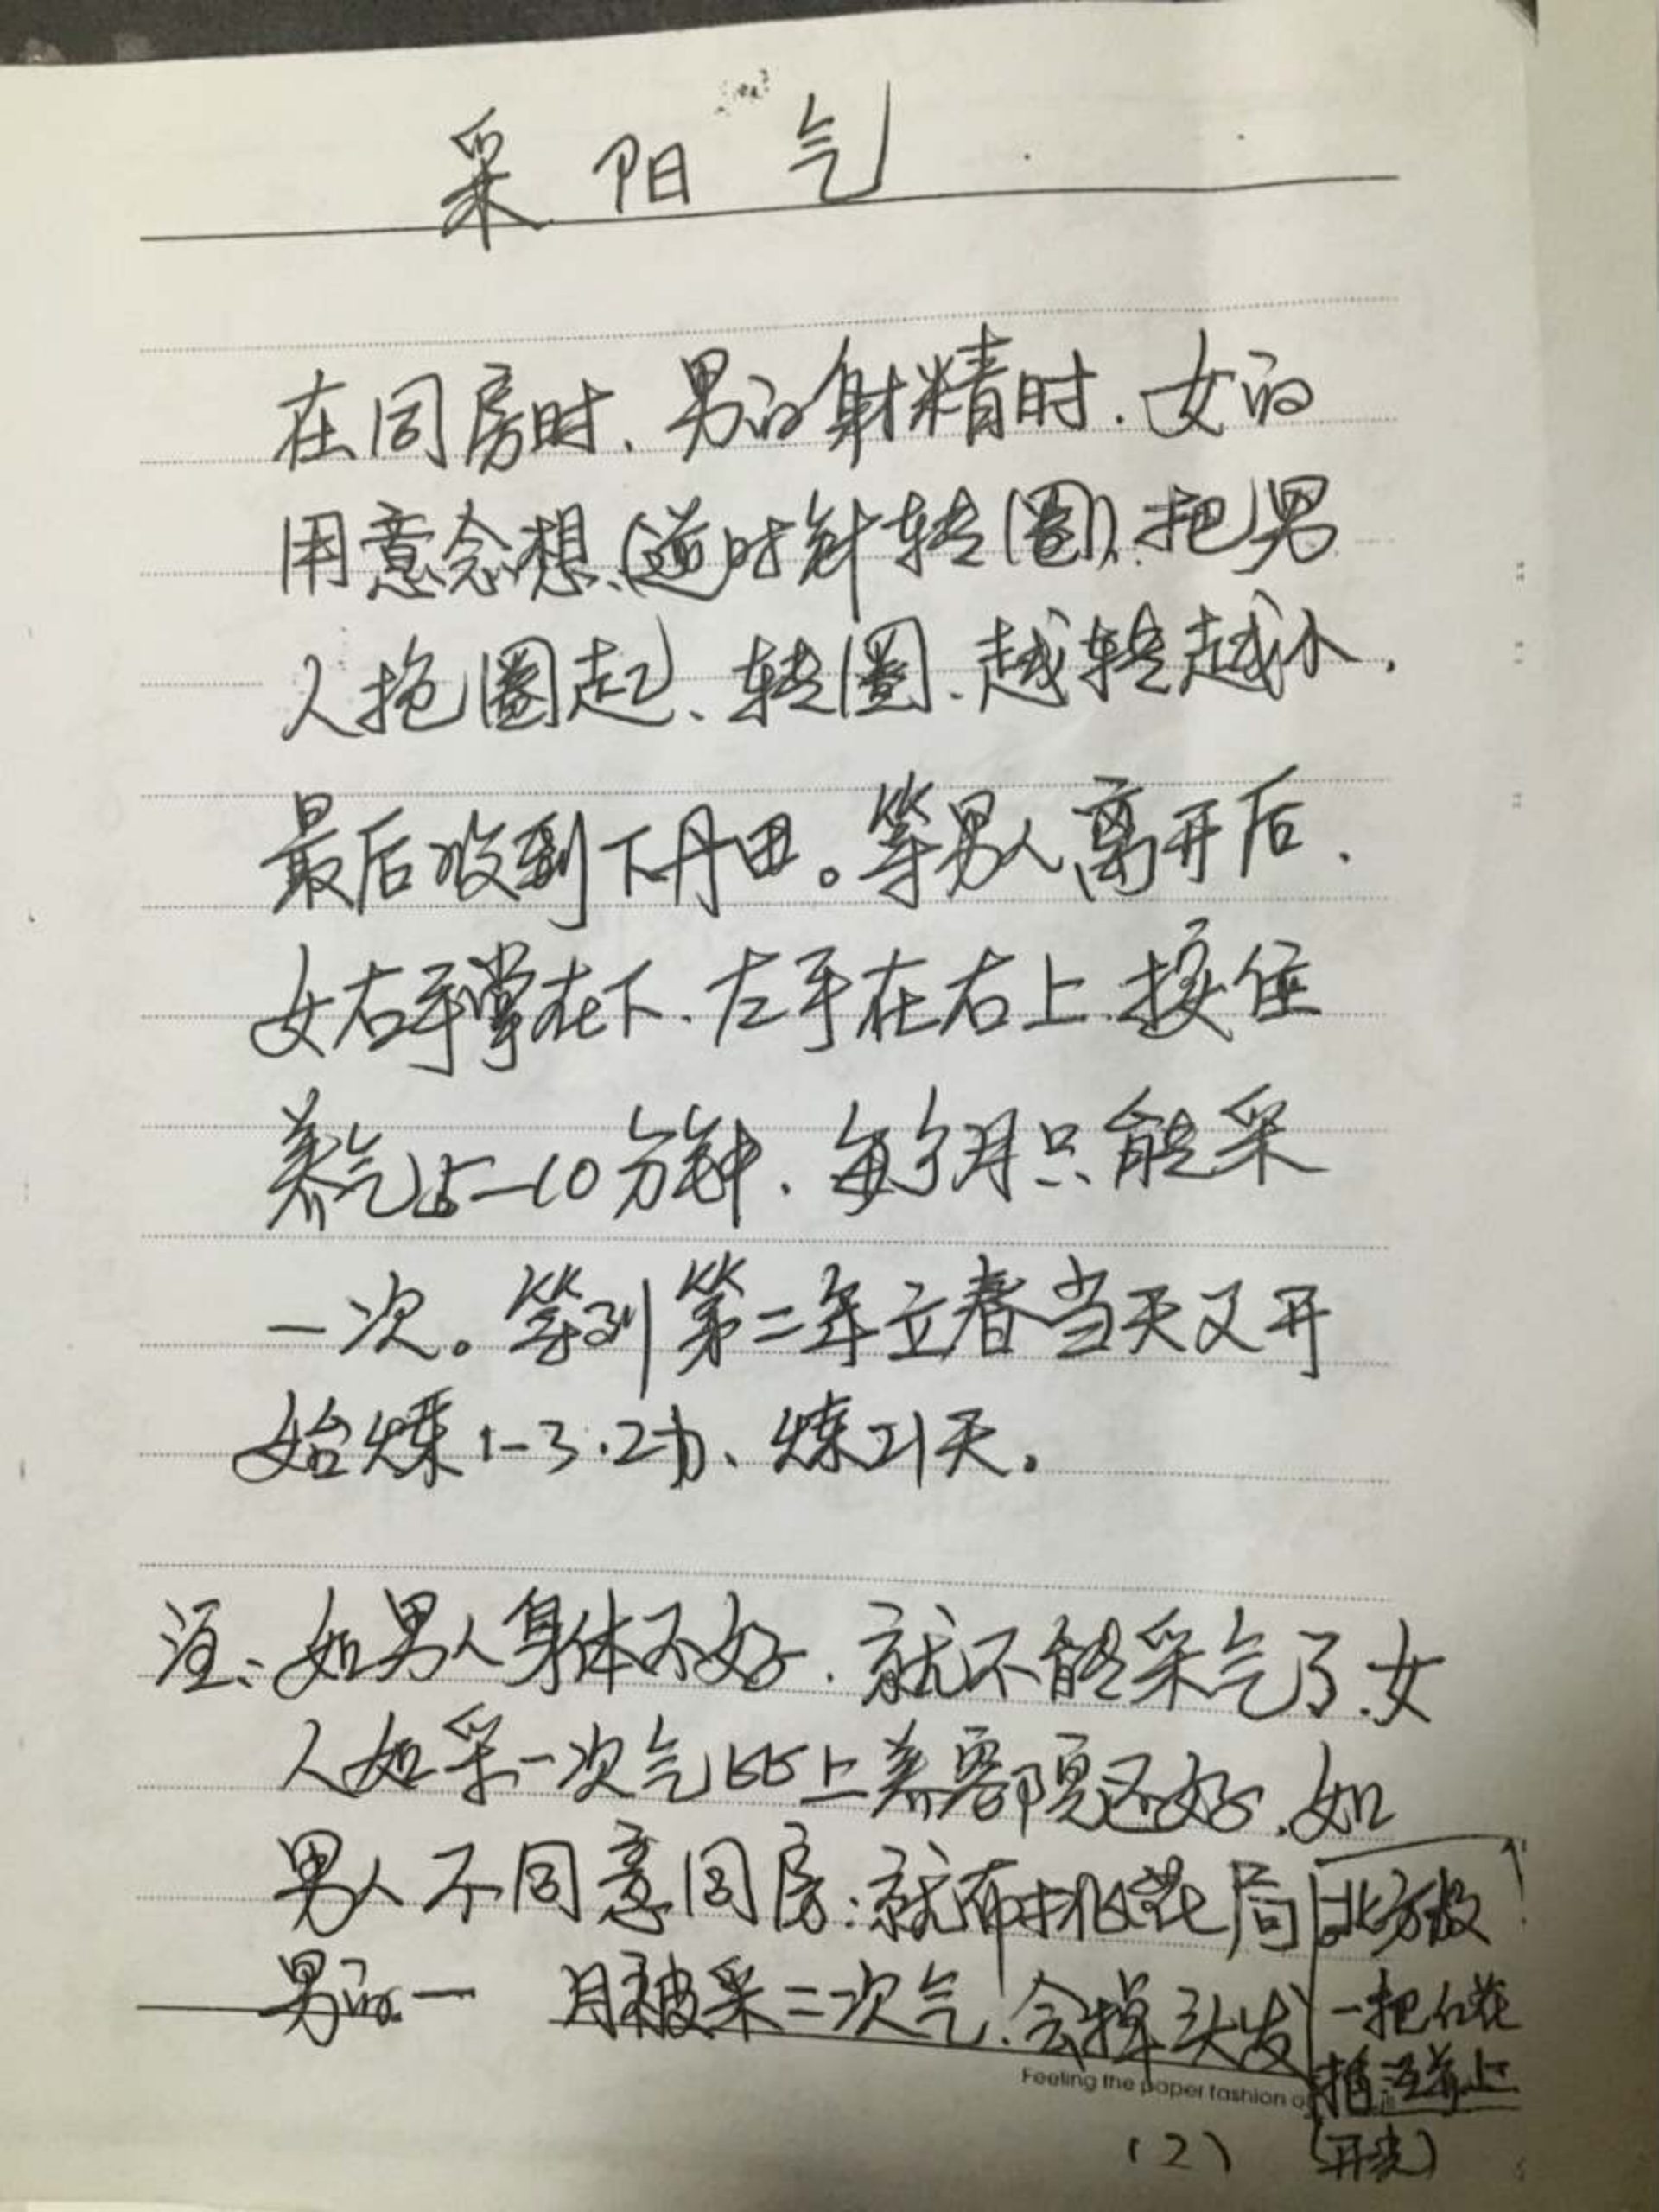 采阳气
在同房时、男的射精时.女的
用意念想、(逆时针转(圈)、把男
人抱圈起、转圈、越转越小.
最后收到下丹田。等男人离开后.
女右手掌在下、左手在右上、按住
养气5—10分钟、每个月只能采
一次。等到第二年立春当天又开
始煉1-3.2功、煉21天。
注、如男人身体不好.就不能采气了.女
人如采一次气比上美容院还好.如
男人不同意同房:就布桃花局
男的一 月被采二次气.会掉头发
北方放
一把红花
插 上
(开光)
Feeling the paper fashion o
(2)